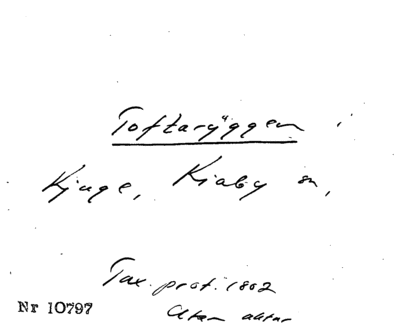 Toftaryggen i
Kjuge, Kiaby sn,
Tax. prot. 1802
Nr 10797
Utan aktnr